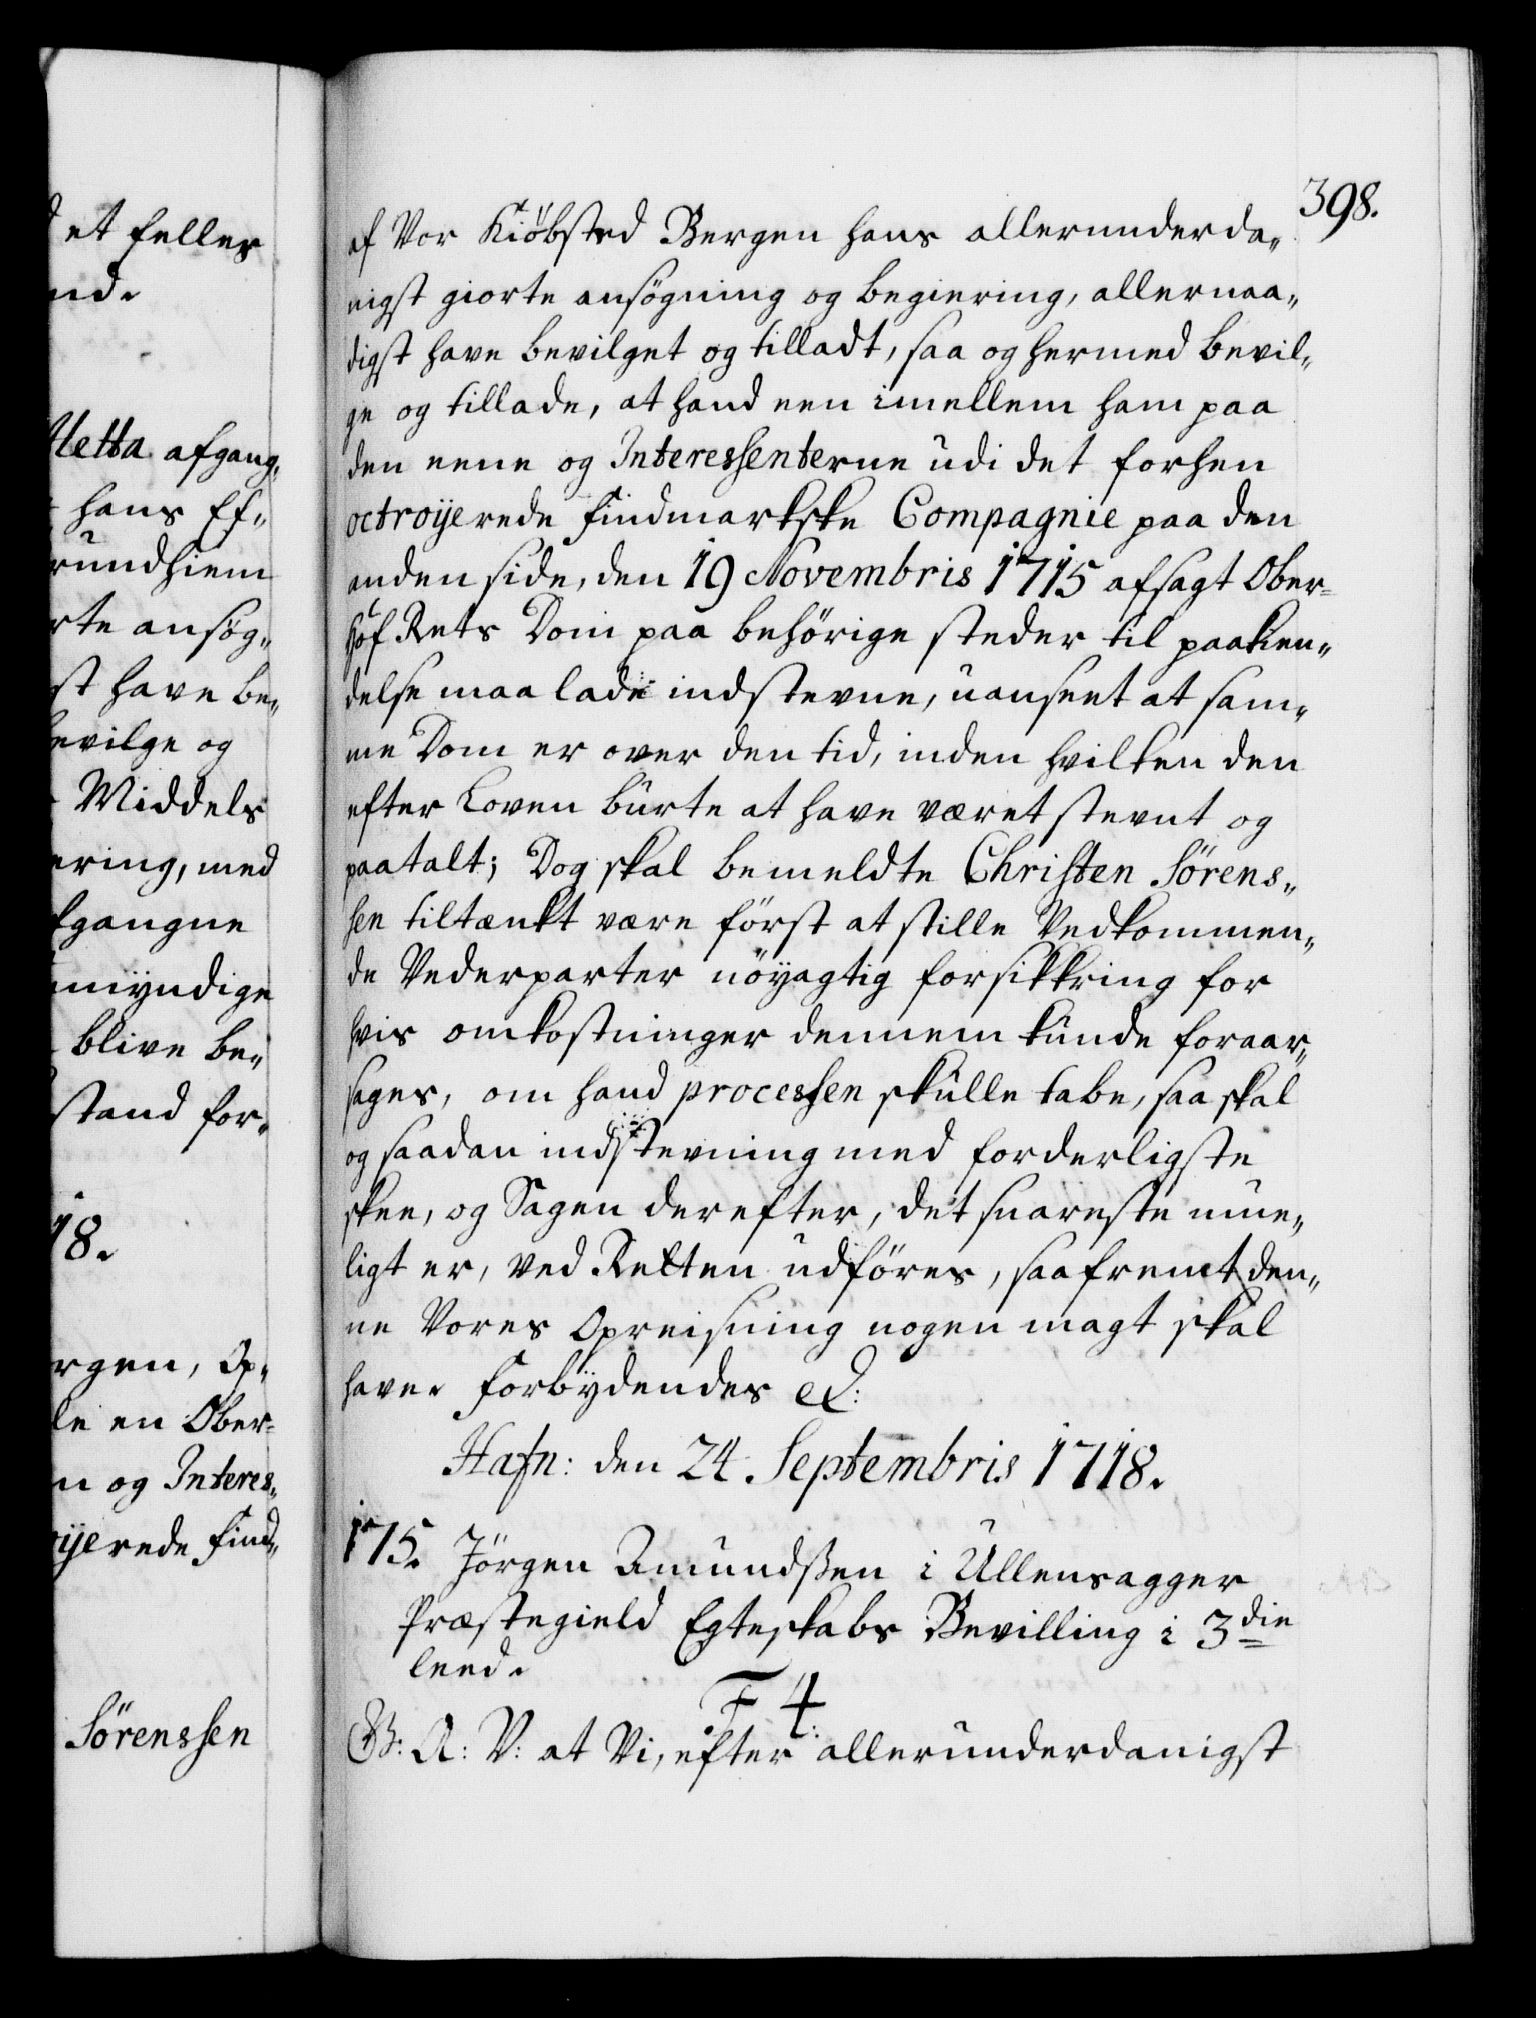 et felles
nd.
Metta afgang,
hans Ef„
rundhiem
rte ansøg„
st have be„
evilge og
Middels
ering, med
fgangne
umÿndige
blive be„
stand for„
18.
rgen, Op„
le en Ober=
n og Interes„
ÿerede Find„
Sörenssen
398.
af Vor Kiöbsted Bergen hans allerunderda„
nigst giorte ansögning og begiering, allernaa„
digst have bevilget og tilladt, saa og hermed bevil„
ge og tillade, at hand een imellem ham paa
den eene og Interessenterne udi det forhen
octroÿerede Findmarkske Compagnie paa den
anden side, den 19 Novembris 1715 afsagt Ober=
Hof Rets Dom paa behörige steder til paakien„
delse maa lade indstevne, uanseet at sam„
me Dom er over den tid, inden hvilken den
efter Loven burte at have været stevnt og
paatalt; Dog skal bemeldte Christen Sörens„
sen tiltænkt være först at stille Vedkommen„
de Vederparter nöÿagtig forsikkring for
hvis omkostninger dennem kunde foraar„
sages, om hand processen skulle tabe, saa skal
og saadan indstevning med forderligste
skee, og Sagen derefter, det snareste mue„
ligt er, ved Retten udföres, saafremt den„
ne Vores Opreisning nogen magt skal
have. Forbÿdendes &:
Hafn: den 24 Septembris 1718.
175. Jörgen Amundßen i Ullensagger
Præstegield Egteskabs Bevilling i 3die
leed.
F 4:
G: A: V: at Vi, efter allerunderdanigst